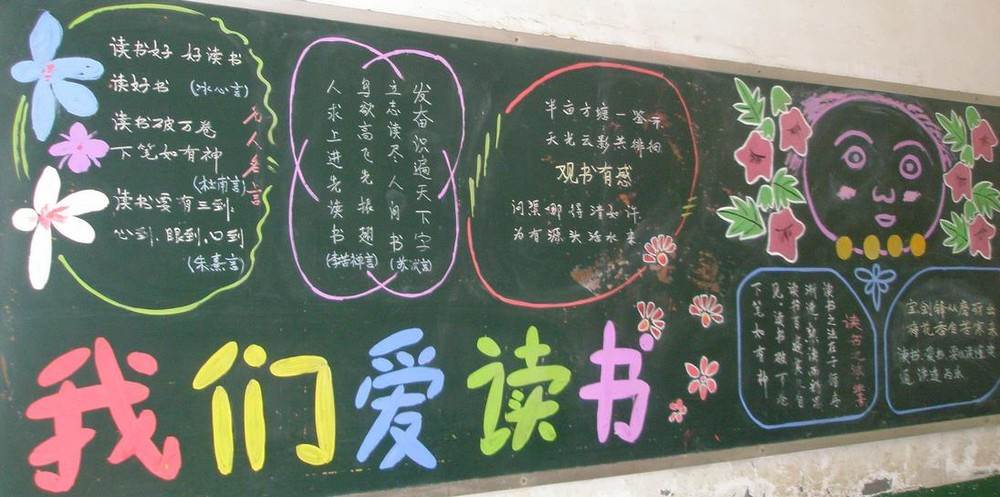 读书好 好读书
读好书 (冰心言)
读书破万卷
下笔如有神
(杜甫言)
读书要有三到:
心到、眼到、口到
(朱熹言)
名人名言
发奋识遍天下字
立志读尽人间书 (苏轼言)
鸟欲高飞先振翅
人求上进先读书 (李苦禅言)
半亩方塘一鉴
天光云影共徘徊
观书有感
问渠哪得清如许
为有源头活水来
我们爱读书
读书之法
读书之法
下笔如有神
宝剑锋从磨砺出
梅花香自苦寒来